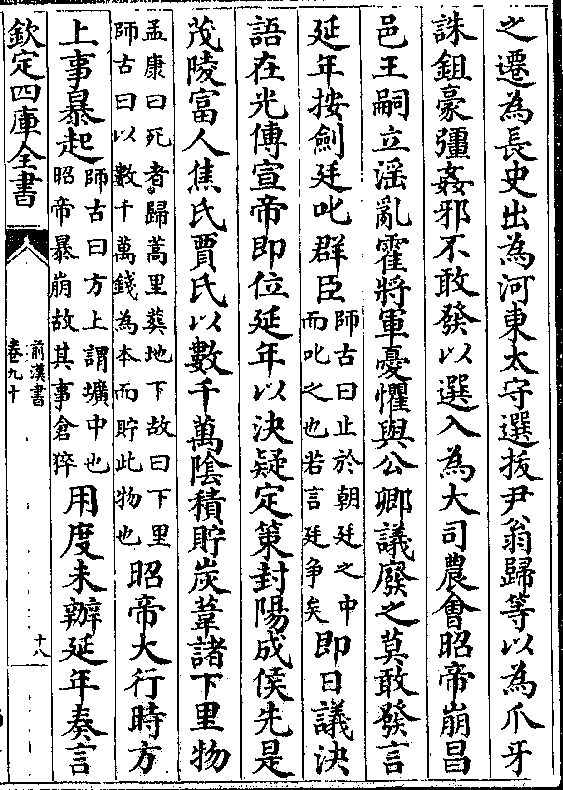 之遷為長史出為河東太守選拔尹翁歸等以為爪牙
誅鉏豪彊姦邪不敢發以選入為大司農會昭帝崩昌
邑王嗣立淫亂霍將軍憂懼與公卿議廢之莫敢發言
延年按劍廷叱群臣師古曰止於朝廷之中而叱之也若言廷争矣即日議決
語在光傳宣帝即位延年以決疑定策封陽成侯先是
茂陵富人焦氏賈氏以數千萬陰積貯炭葦諸下里物
孟康曰死者歸蒿里葬地下故曰下里師古曰以數千萬錢為本而貯此物也昭帝大行時方
上事暴起師古曰方上謂壙中也昭帝暴崩故其事倉猝用度未辦延年奏言
欽定四庫全書
前漢書
卷九十
十八